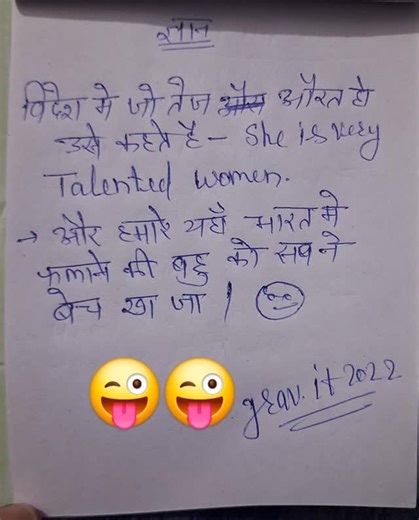 ज्ञान
विदेश मे जो तेज औरत हो
उसे कहते है - She is very
Talented women.
→ और हमारे यहाँ भारत मे
फलाने की बहु को सब ने
बेच खा जा |
grav.it 2022